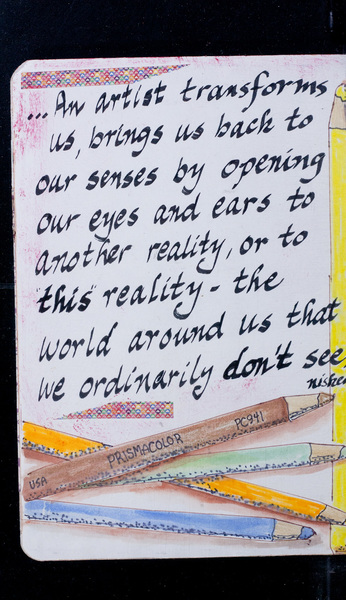 ...An artist transforms
us, brings us back to
our senses by opening
our eyes and ears to
another reality, or to
"this" reality - the
world around us that
we ordinarily don't see,
PRISMACOLOR PC941
USA